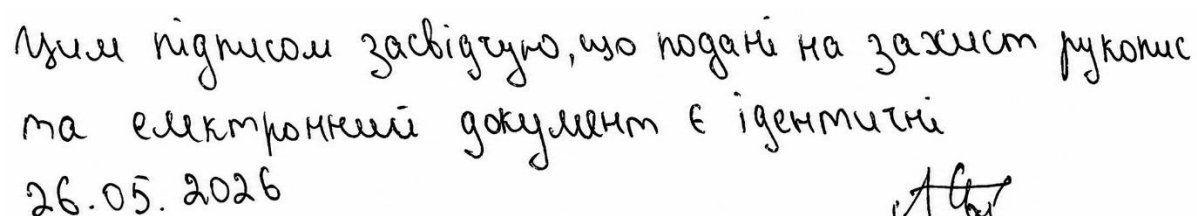 Цим підписом засвідчую, що подані на захист рукопис
та електронний документ є ідентичні
26.05.2026